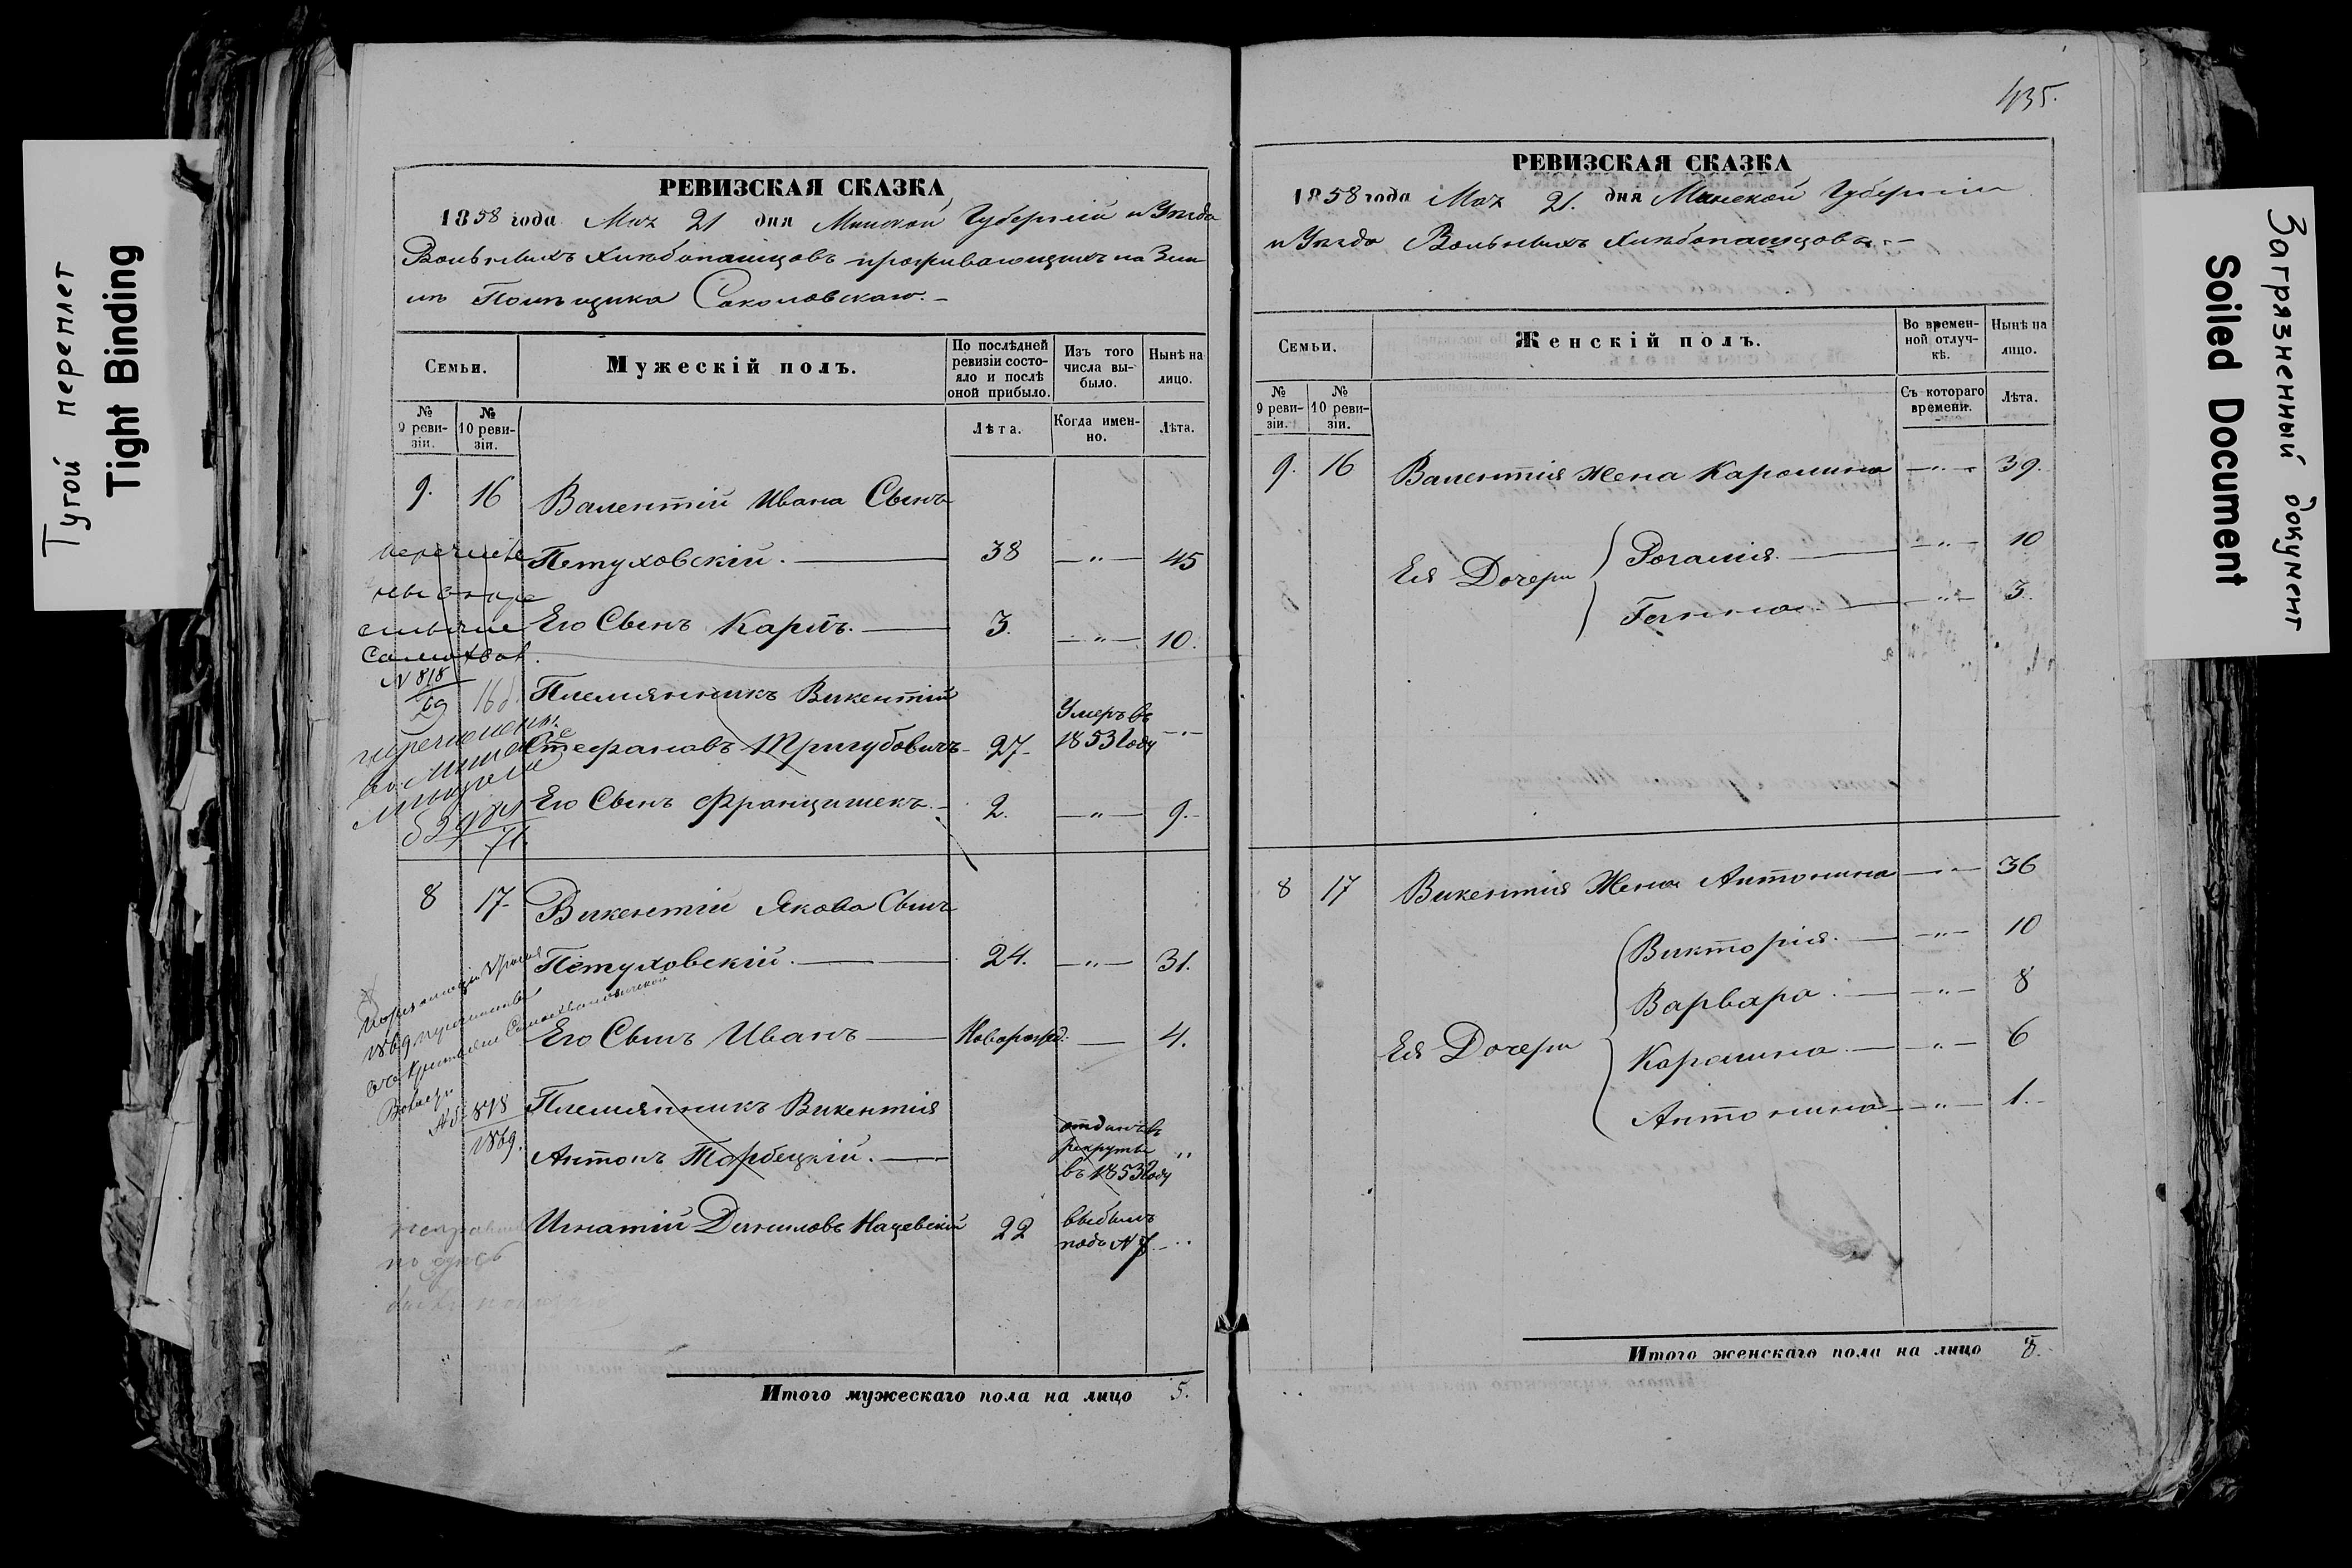 Тугой переплет
Tight Binding
РЕВИЗСКАЯ СКАЗКА
1858 года Мая 21 дня Минской Губерніи и Уѣзда
Вольныхъ Хлѣбопашцовъ проживающихъ на Зем
лѣ Помѣщика Соколовскаго.
Семьи.
Мужескій полъ.
По послѣдней ревизіи состояло и послѣ оной прибыло.
Изъ того числа выбыло.
Нынѣ на лицо.
№ 9 ревизіи.
№ 10 ревизіи.
Лѣта.
Когда именно.
Лѣта.
9. 16 Валентій Ивана Сынъ
Петуховскій. 38 —"— 45
Его Сынъ Карлъ. 3. —"— 10.
N 818
69 16б
Племянникъ Викентій
Стефановъ Тригубовичъ 27 Умеръ въ 1853 году —"—
Его Сынъ Францишекъ. 2. —"— 9.
71.
8 17 Викентій Якова Сынъ
Петуховскій. 24. —"— 31.
Его Сынъ Иванъ Новорожд. — 4.
878
1869.
Племянникъ Викентія
Антонъ Торбецкій. отданъ въ рекруты въ 1853 году "
Игнатій Даниловъ Нацевскій 22 выбылъ подъ N 7. "
Итого мужескаго пола на лицо 5.
435.
РЕВИЗСКАЯ СКАЗКА
1858 года Мая 21. дня Минской Губерніи
и Уѣзда Вольныхъ Хлѣбопашцовъ.
Семьи.
Женскій полъ.
Во временной отлучкѣ.
Нынѣ на лицо.
№ 9 ревизіи.
№ 10 ревизіи.
Съ котораго времени.
Лѣта.
9. 16 Валентія Жена Каролина —"— 39.
Ея Дочери
Розалія. —"— 10
Ганна —"— 3.
8 17 Викентія Жена Антонина —"— 36
Ея Дочери
Викторія. —"— 10
Варвара. —"— 8
Каролина —"— 6
Антонина —"— 1.
Итого женскаго пола на лицо 8.
Загрязненный документ
Soiled Document